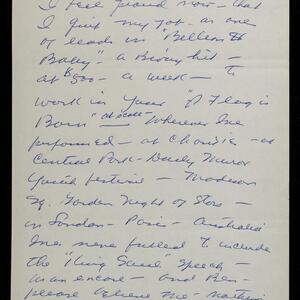 I feel proud now - that
I quit my job - as one
of leads in "Bellen to
Bottey" - a B'way hit -
at $500 - a week - to
work in your "A Flag is
Born" at scale - Wherever I've
performed - at churches - at
Central Park - Daily Mirror
Youth Festival - Madison
Sq. Garden Night of Stars -
in London - Paris - Australia
I've never failed to include
the "King Saul" speech -
as an encore - and Ben -
please believe me - nothing